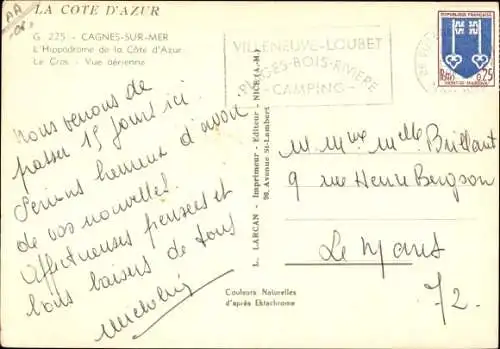 LA COTE D'AZUR
G. 225 - CAGNES-SUR-MER
L'Hippodrome de la Côte d'Azur
Le Cros - Vue aérienne
Nous venons de
passer 15 jours ici.
Serions heureux d'avoir
de vos nouvelles.
Affectueuses pensées et
bons baisers de tous
L. LARCAN - Imprimeur - Editeur - NICE (A.-M.)
98, Avenue St-Lambert
Couleurs Naturelles
d'après Ektachrome
VILLENEUVE-LOUBET
PLAGES-BOIS-RIVIERE
- CAMPING -
REPUBLIQUE FRANÇAISE
0,25
MONT-DE-MARSAN
M. Mme Melle Brillant
9 rue Henri Bergson
Le Mans
72.